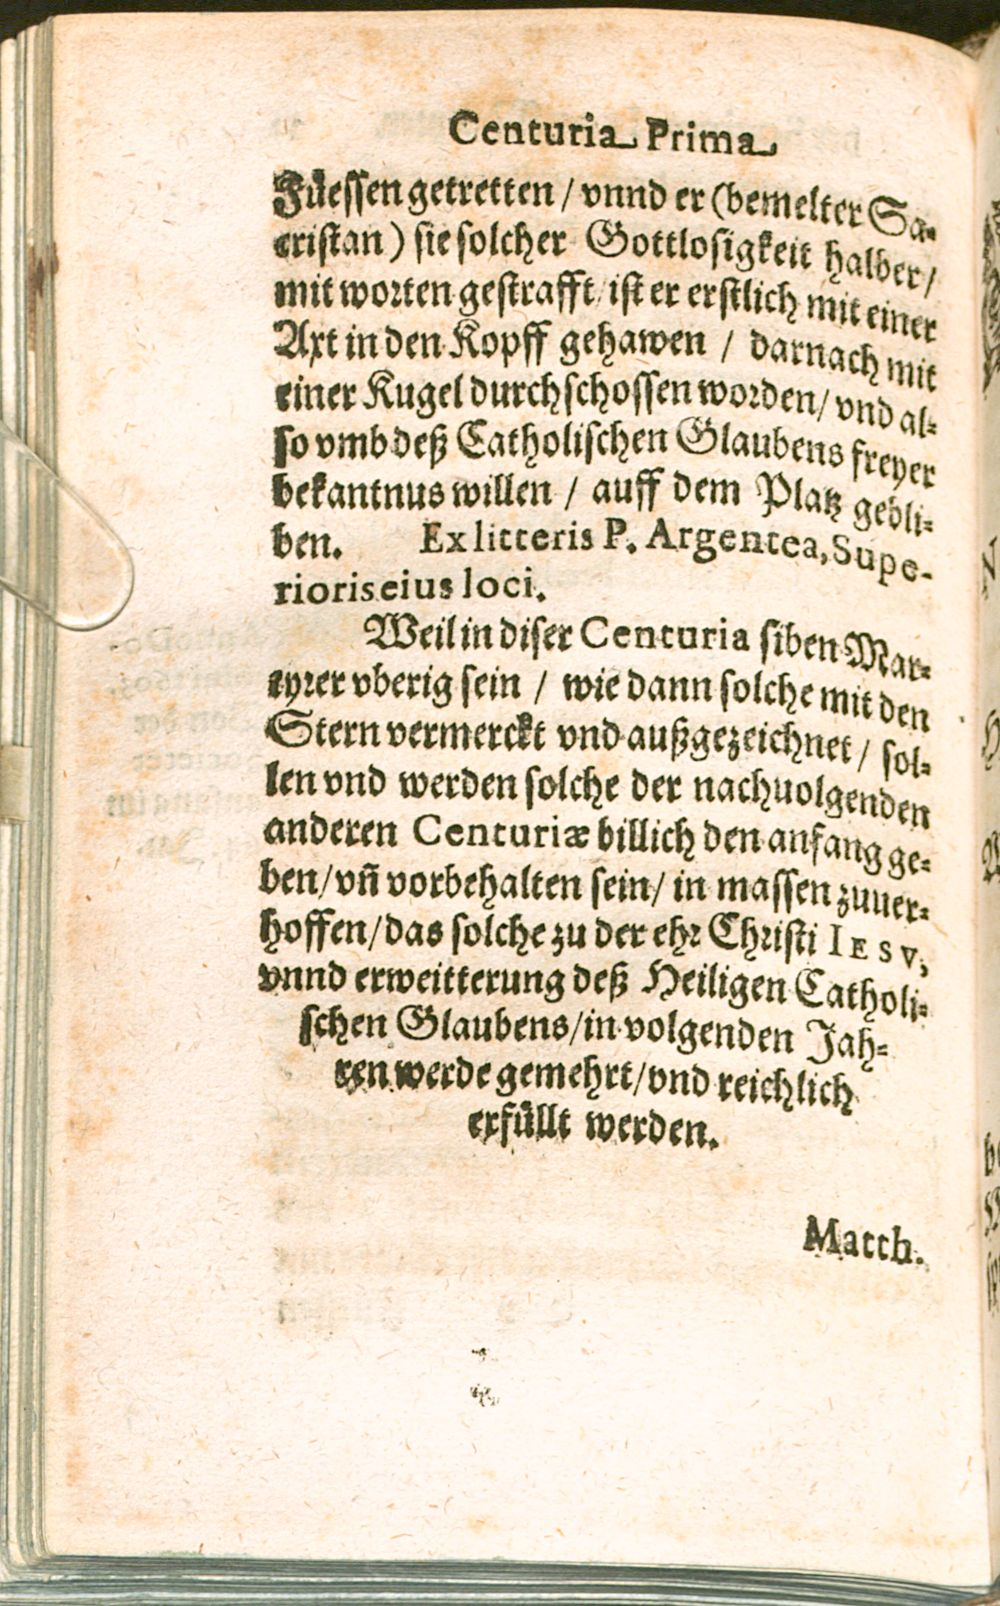 Centuria Prima
Füessen getretten / vnnd er (bemelter Sa-
cristan) sie solcher Gottlosigkeit halber /
mit worten gestrafft / ist er erstlich mit einer
Axt in den Kopff gehawen / darnach mit
einer Kugel durchschossen worden / vnd al-
so vmb deß Catholischen Glaubens freyer
bekantnus willen / auff dem Platz gebli-
ben. Ex litteris P. Argentea, Supe-
rioris eius loci.
Weil in diser Centuria siben Mar-
tyrer vberig sein / wie dann solche mit den
Stern vermerckt vnd außgezeichnet / sol-
len vnd werden solche der nachuolgenden
anderen Centuriæ billich den anfang ge-
ben / vñ vorbehalten sein / in massen zuuer-
hoffen / das solche zu der ehr Christi IESV,
vnnd erweitterung deß Heiligen Catholi-
schen Glaubens / in volgenden Jah-
ren werde gemehrt / vnd reichlich
erfüllt werden.
Matth.